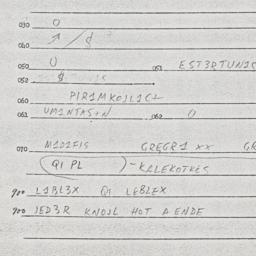 030 O
040 $
050 O 051 EST3RTUNIS
052 $
060 PIR1MKOJL1C+
061 UM1NTAS+N 062 O
070 M1D1FIS GREGR1 XX GR
(QI PL)-KALEKOTKES
900 L1BL3X QI LEBLEX
900 JED3R KNOJL HOT A ENDE